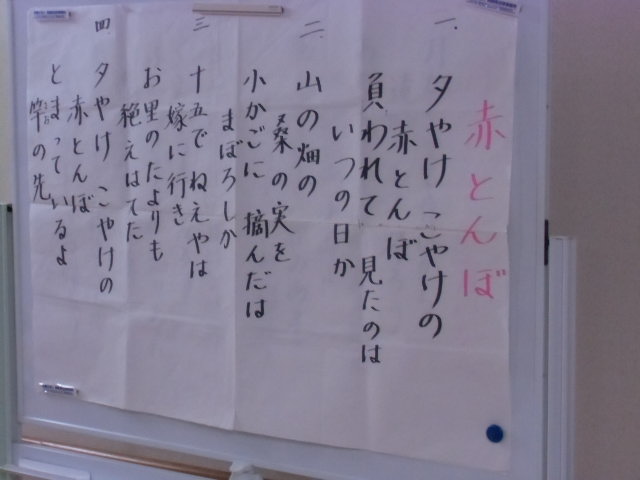 赤とんぼ
一、夕やけ こやけの
赤とんぼ
負われて 見たのは
いつの日か
二、山の畑の
桑の実を
小かごに 摘んだは
まぼろしか
三、十五でねえやは
嫁に行き
お里のたよりも
絶えはてた
四、夕やけ こやけの
赤とんぼ
とまっているよ
竿の先